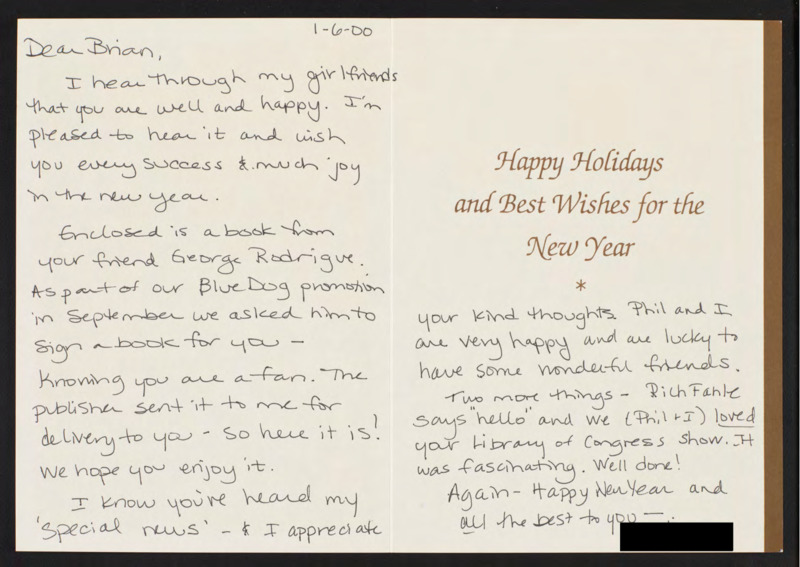 1-6-00
Dear Brian,
I hear through my girlfriends
that you are well and happy. I'm
pleased to hear it and wish
you every success & much joy
in the new year.
Enclosed is a book from
your friend George Rodrigue.
As part of our Blue Dog promotion
in September we asked him to
sign a book for you -
Knowing you are a fan. The
publisher sent it to me for
delivery to you - so here it is!
We hope you enjoy it.
I know you've heard my
'special news' - & I appreciate
Happy Holidays
and Best Wishes for the
New Year
*
your kind thoughts. Phil and I
are very happy and are lucky to
have some wonderful friends.
Two more things - Rich Fahle
says "hello" and we (Phil + I) loved
your Library of Congress show. It
was fascinating. Well done!
Again - Happy New Year and
all the best to you —.